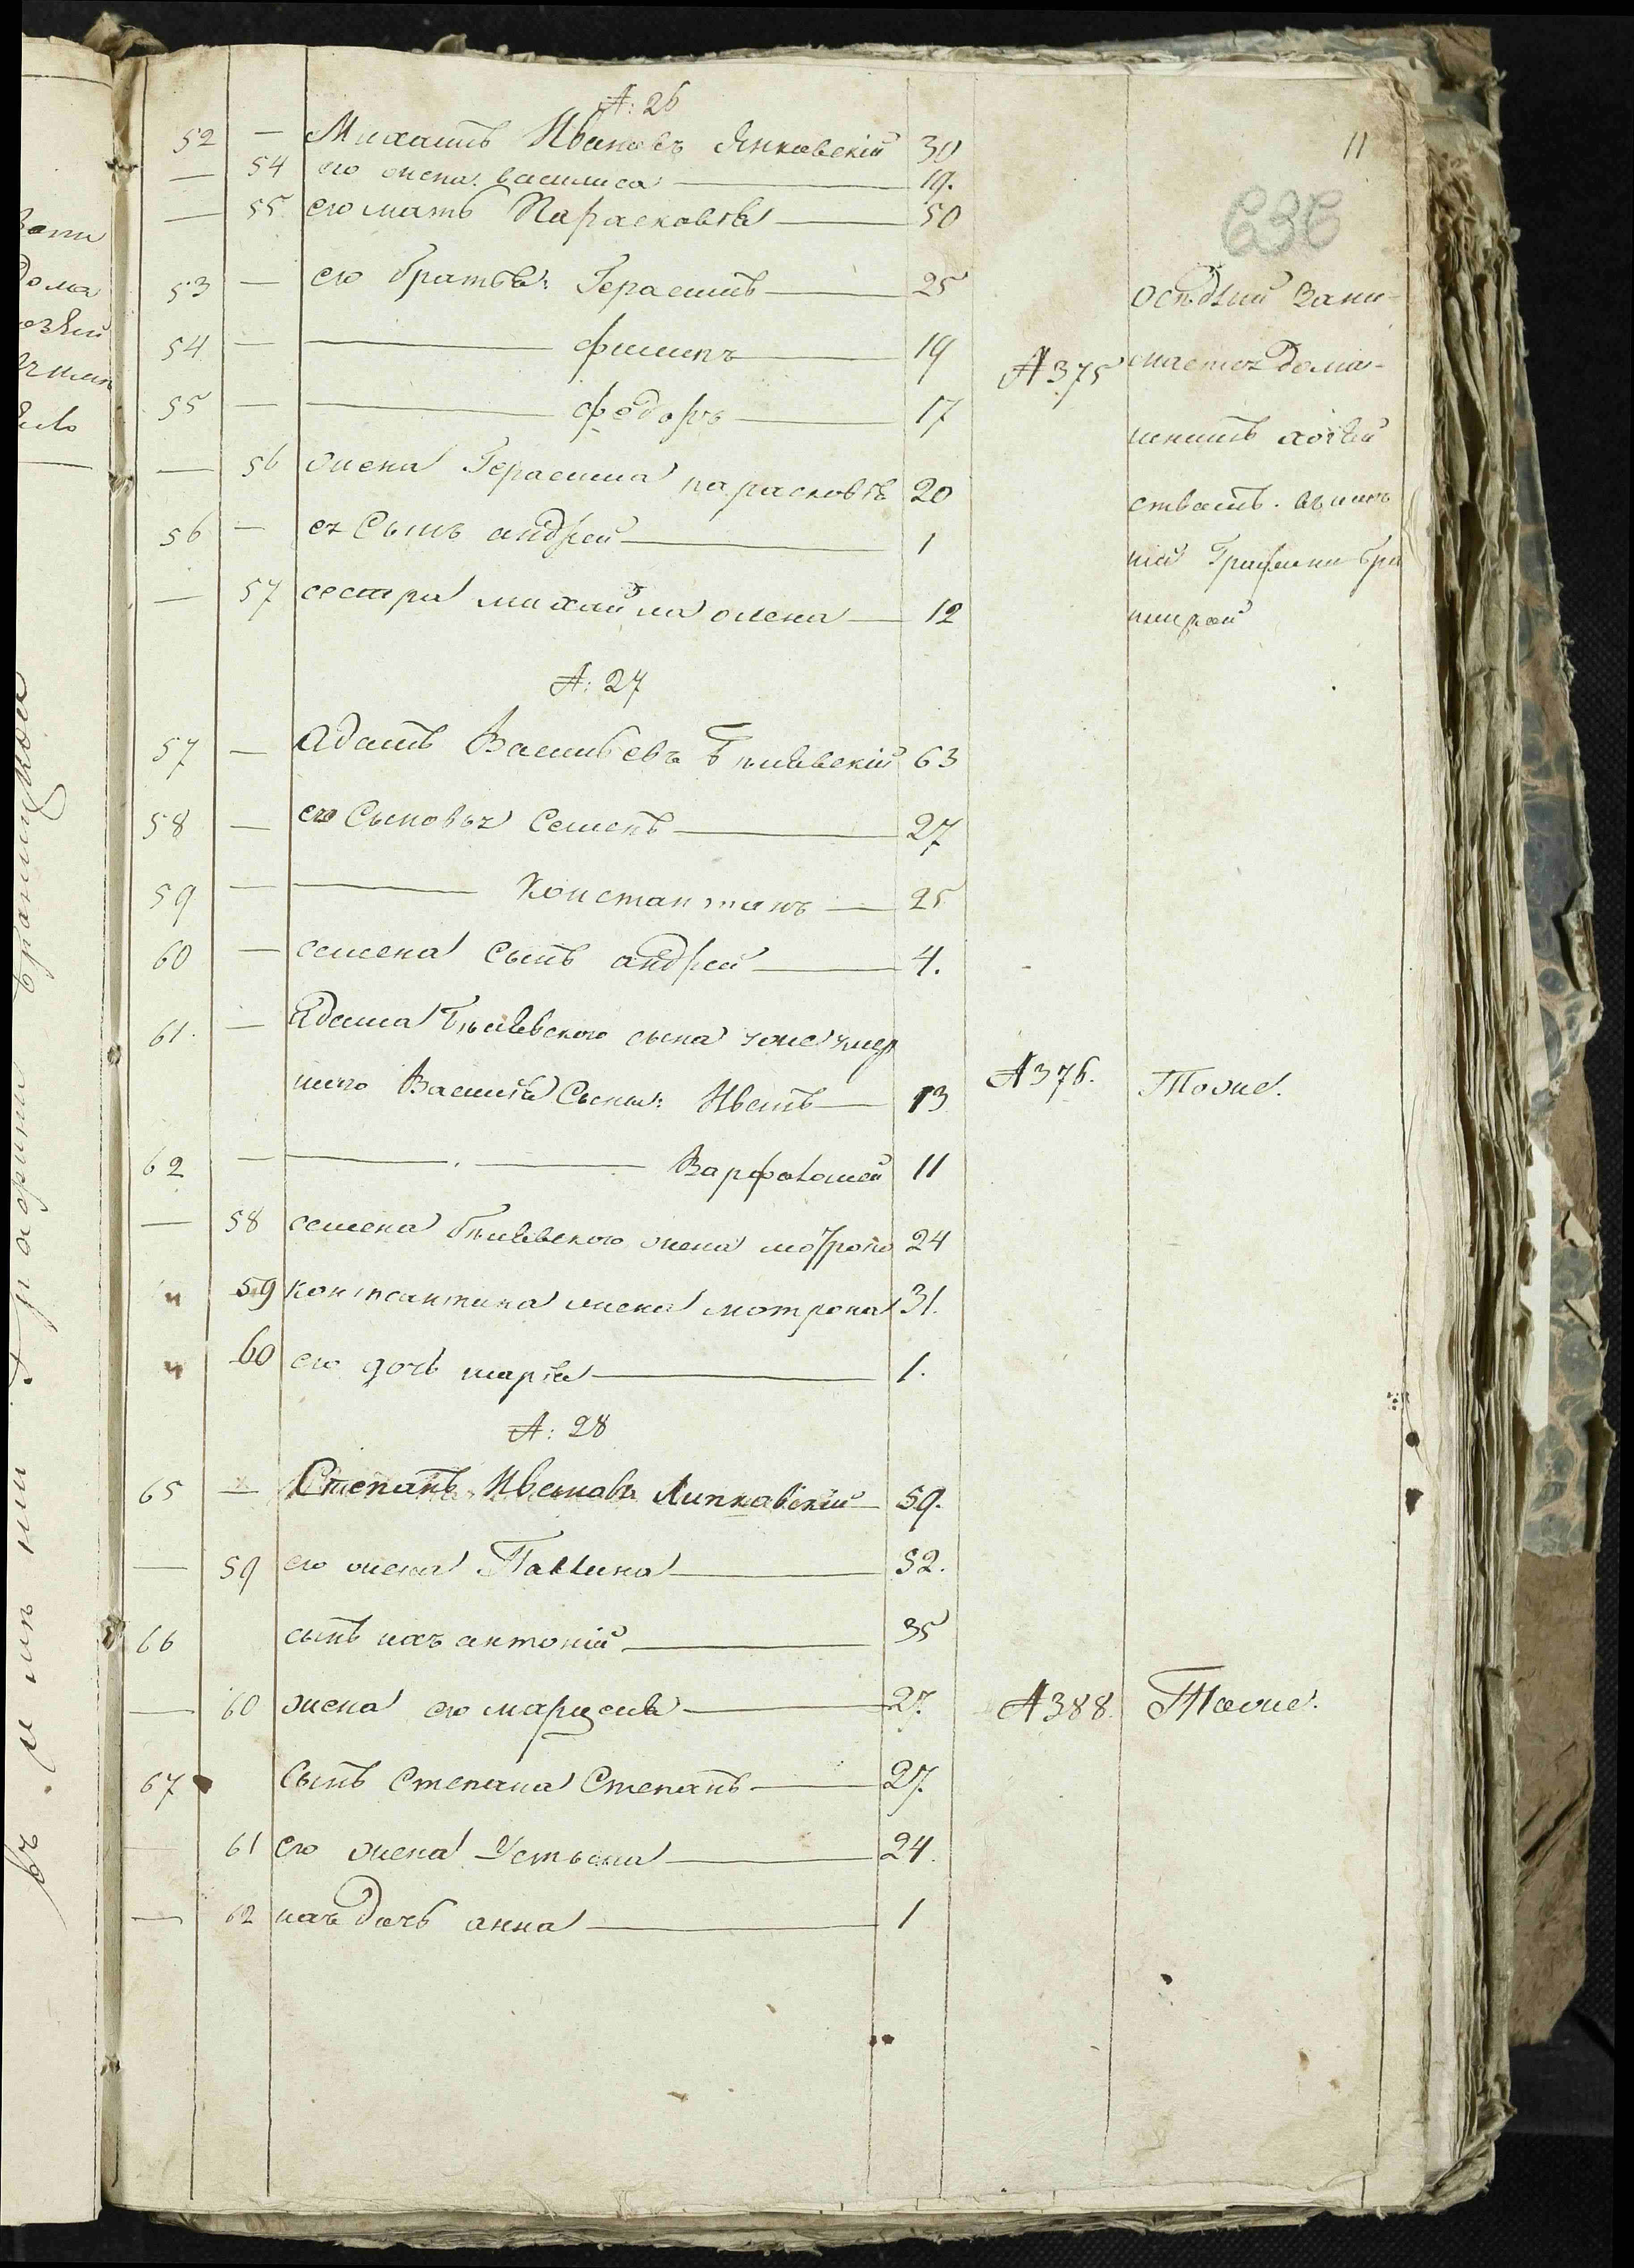 11
636
А: 26
52 — Михаилъ Ивановъ Янковскій 30
— 54 его жена Василиса — 19.
— 55 его мать Парасковія — 50
53 — его братья: Герасимъ — 25
54 — — филипъ — 19
55 — — федоръ — 17
— 56 жена Герасима парасковія 20
56 — ея Сынъ андрей — 1
— 57 сестра михайла олена — 12
А 375
осѣдлый Зани-
мается дома-
шнимъ хозяй
ствомъ. въ имѣ
ніи Графини Бра
ницкой
А: 27
57 — Адамъ Васильевъ Бѣлявскій 63
58 — его Сыновья Семенъ — 27
59 — — Константинъ — 25
60 — семена сынъ андрей — 4.
61. — Адама Бѣлявского сына тоже умер
шого Василія Сыны: Иванъ — 13
62 — — Варфоломей 11
— 58 семена бѣлявского жена мотрона 24
" 59 константина жена мотрона 31.
" 60 его дочь марія — 1.
А 376. Тоже.
А: 28
65 — Степанъ Ивановъ Липковскій 59.
— 59 его жена Павлина — 52.
66 сынъ ихъ антоній — 35
— 60 жена его марцеля — 27.
67 Сынъ Степана Степанъ — 27.
61 его жена Устьяна — 24.
— 62 ихъ дочь анна — 1
А 388. Тоже.